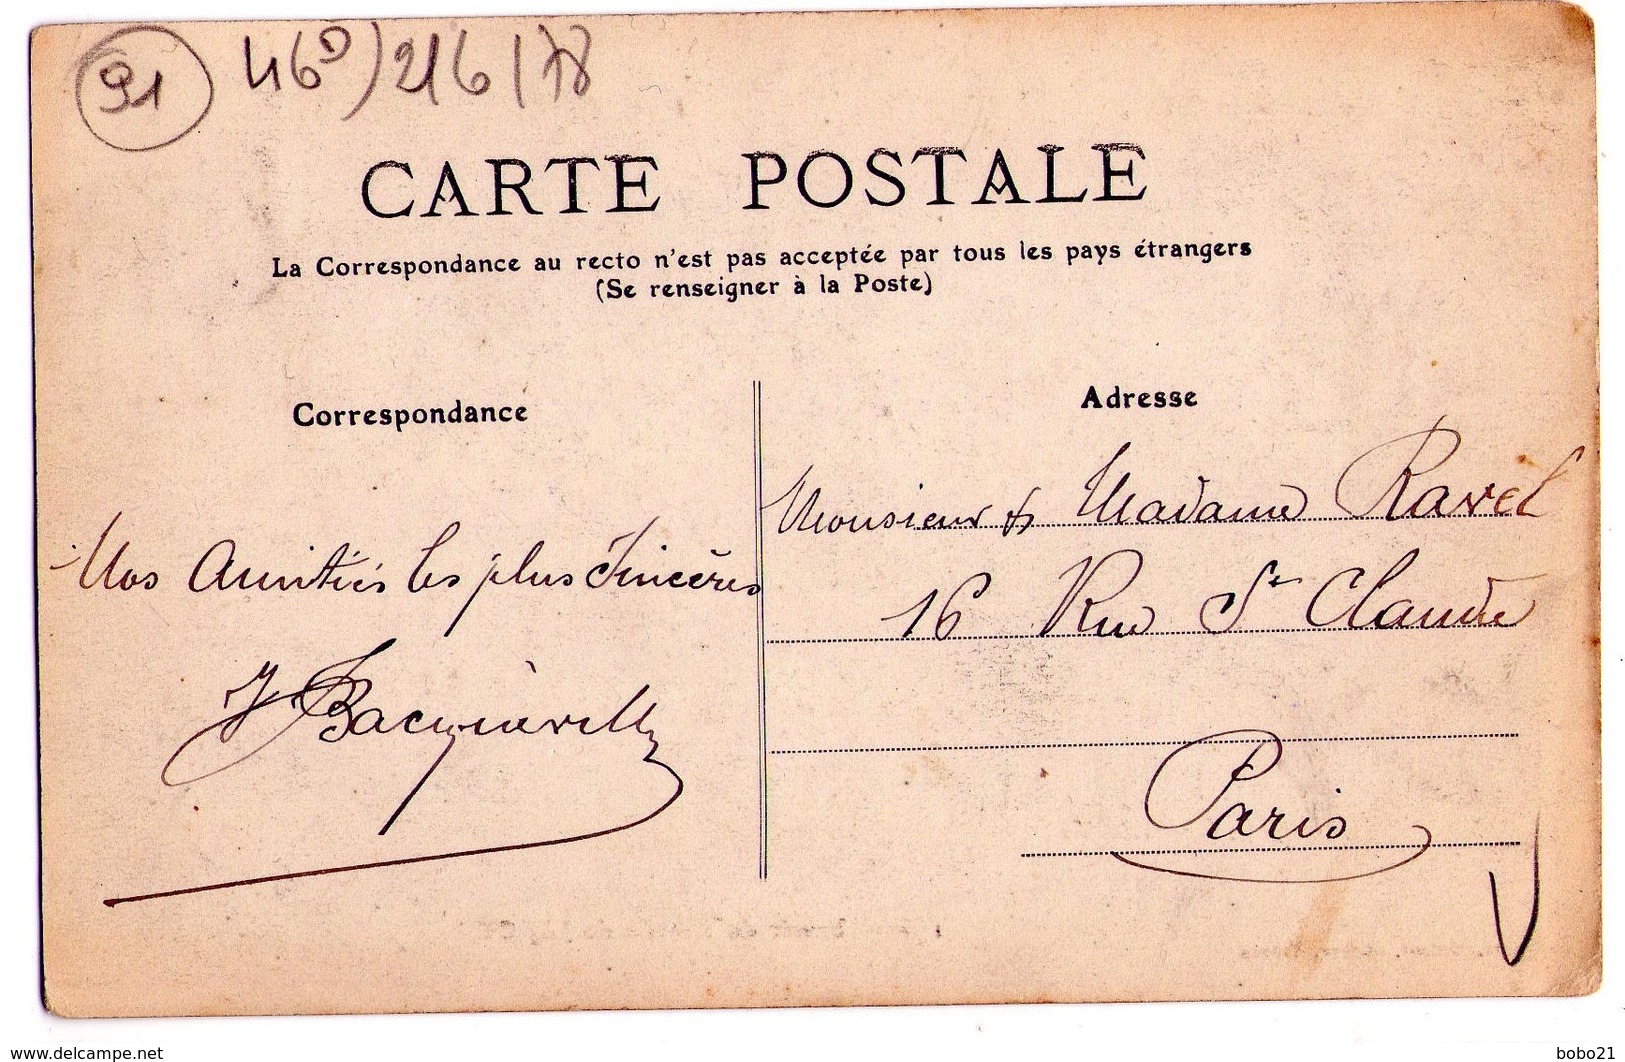 91
46D) 216/78
CARTE POSTALE
La Correspondance au recto n'est pas acceptée par tous les pays étrangers
(Se renseigner à la Poste)
Correspondance
Nos Amitiés les plus Sincères
Bacquèville
Adresse
Monsieur & Madame Ravel
16 Rue St Claude
Paris
www.delcampe.net
bobo21